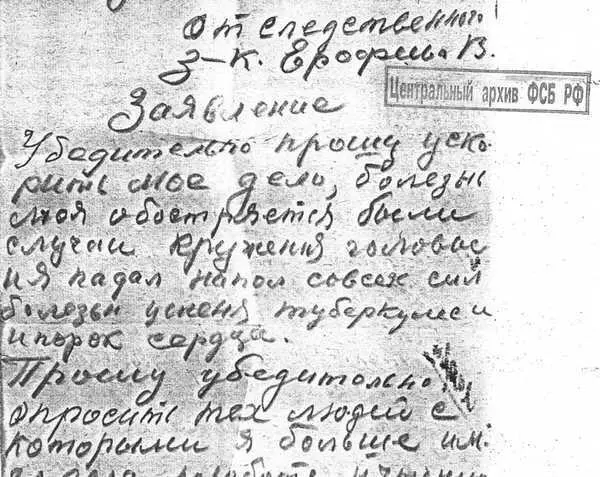 От следственного
З-К. Ерофеева В.
Центральный архив ФСБ РФ
Заявление
Убедительно прошу уско
рить мое дело, болезнь
моя обостряется были
случаи кружения головы
и я падал напол совсех сил
болезнь у меня туберкулес и
и порок сердца.
Прошу убедительно
опросить тех людей с
которыми я больше им